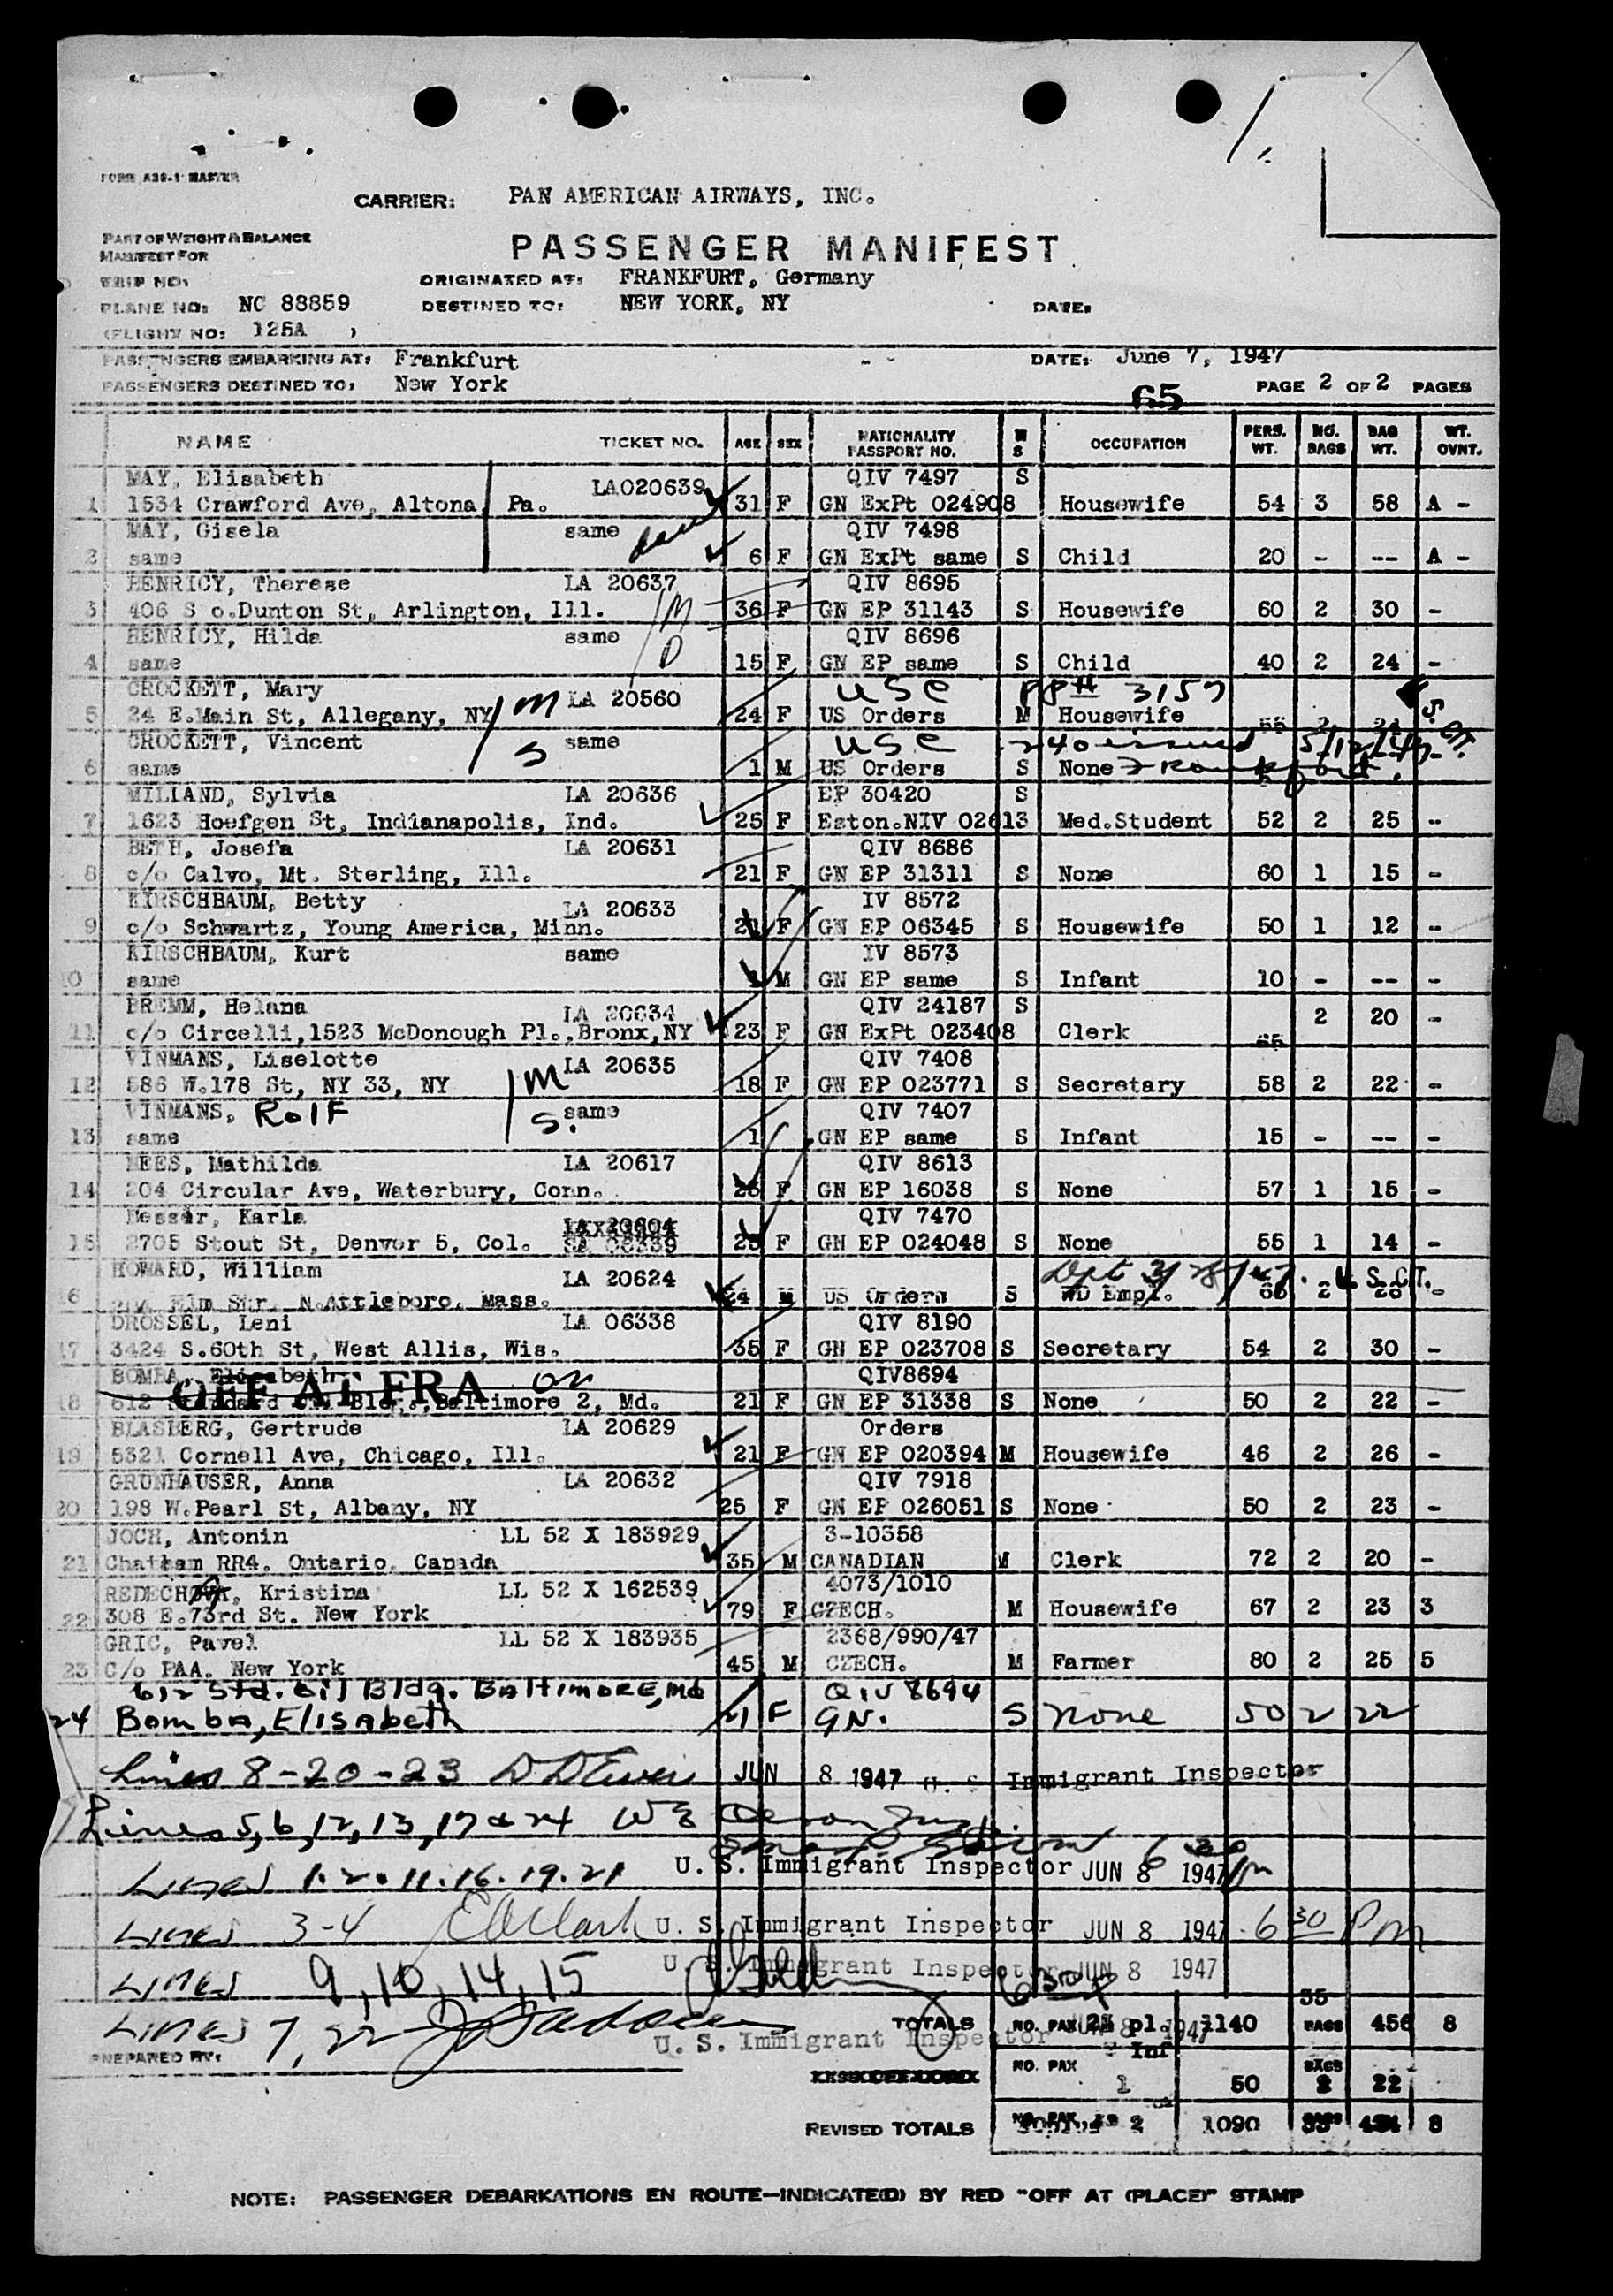 FORM A20-1 MASTER
CARRIER: PAN AMERICAN AIRWAYS, INC.
PART OF WEIGHT & BALANCE
MANIFEST FOR
PASSENGER MANIFEST
TRIP NO:
ORIGINATED AT: FRANKFURT, Germany
PLANE NO: NC 88859
DESTINED TO: NEW YORK, NY
DATE:
(FLIGHT NO: 125A )
PASSENGERS EMBARKING AT: Frankfurt
DATE: June 7, 1947
PASSENGERS DESTINED TO: New York
65
PAGE 2 OF 2 PAGES
NAME TICKET NO. AGE SEX NATIONALITY PASSPORT NO. M S OCCUPATION PERS. WT. NO. BAGS BAG WT. WT. OVNT.
MAY, Elisabeth LA020639 QIV 7497 S
1 1534 Crawford Ave, Altona Pa. 31 F GN ExPt 024908 Housewife 54 3 58 A -
MAY, Gisela same QIV 7498
2 same 6 F GN ExPt same S Child 20 - --- A -
HENRICY, Therese LA 20637 QIV 8695
3 406 S o.Dunton St, Arlington, Ill. M 36 F GN EP 31143 S Housewife 60 2 30 -
HENRICY, Hilda same QIV 8696
4 same D 15 F GN EP same S Child 40 2 24 -
CROCKETT, Mary LA 20560 USC PP# 3157
5 24 E.Main St, Allegany, NY M 24 F US Orders M Housewife 55 2 24 U.S. CIT.
CROCKETT, Vincent S same USC 240 issued 5/12/47
6 same 1 M US Orders S None Frankfort.
MILLAND, Sylvia LA 20636 EP 30420 S
7 1623 Hoefgen St, Indianapolis, Ind. 25 F Eston.NIV 02613 Med.Student 52 2 25 -
BETH, Josefa LA 20631 QIV 8686
8 c/o Calvo, Mt. Sterling, Ill. 21 F GN EP 31311 S None 60 1 15 -
KIRSCHBAUM, Betty LA 20633 IV 8572
9 c/o Schwartz, Young America, Minn. F GN EP 06345 S Housewife 50 1 12 -
KIRSCHBAUM, Kurt same IV 8573
10 same M GN EP same S Infant 10 - --- -
BREMM, Helana LA 20634 QIV 24187 S
11 c/o Circelli,1523 McDonough Pl.,Bronx,NY 23 F GN ExPt 023408 Clerk 65 2 20 -
VINMANS, Liselotte LA 20635 QIV 7408
12 586 W.178 St, NY 33, NY M 18 F GN EP 023771 S Secretary 58 2 22 -
VINMANS, Rolf S. same QIV 7407
13 same 1 GN EP same S Infant 15 - --- -
NEES, Mathilda LA 20617 QIV 8613
14 204 Circular Ave, Waterbury, Conn. 26 F GN EP 16038 S None 57 1 15 -
Messer, Karla LA 20604 QIV 7470
15 2705 Stout St, Denver 5, Col. 25 F GN EP 024048 S None 55 1 14 -
HOWARD, William LA 20624 Dpt 3/28/47. U.S. CIT.
16 Elm Str, N.Attleboro, Mass. 24 M US Orders S WD Empl. 66 2 20 -
DROSSEL, Leni LA 06338 QIV 8190
17 3424 S.60th St, West Allis, Wis. 35 F GN EP 023708 S Secretary 54 2 30 -
BOMBA, Elisabeth OFF AT FRA on QIV8694
18 612 Standard Oil Bldg, Baltimore 2, Md. 21 F GN EP 31338 S None 50 2 22 -
BLASBERG, Gertrude LA 20629 Orders
19 5321 Cornell Ave, Chicago, Ill. 21 F GN EP 020394 M Housewife 46 2 26 -
GRUNHAUSER, Anna LA 20632 QIV 7918
20 198 W.Pearl St, Albany, NY 25 F GN EP 026051 S None 50 2 23 -
JOCH, Antonin LL 52 X 183929 3-10358
21 Chatham RR4. Ontario. Canada 35 M CANADIAN M Clerk 72 2 20 -
REDECHOVA, Kristina LL 52 X 162539 4073/1010
22 308 E.73rd St. New York 79 F CZECH. M Housewife 67 2 23 3
GRIC, Pavel LL 52 X 183935 2368/990/47
23 C/o PAA. New York 45 M CZECH. M Farmer 80 2 25 5
612 Std. Oil Bldg. Baltimore, Md QIV 8694
24 Bomba, Elisabeth 21 F GN. S None 50 2 22
Lines 8-20-23 JUN 8 1947 U. S. Immigrant Inspector
Lines 5, 6, 12, 13, 17 & 24
Lines 1. 2. 11. 16. 19. 21 U. S. Immigrant Inspector JUN 8 1947 6 30 pm
Lines 3-4 U. S. Immigrant Inspector JUN 8 1947 6 30 Pm
Lines 9, 10, 14, 15 U. S. Immigrant Inspector JUN 8 1947 6 30 P
Lines 7, 22 U. S. Immigrant Inspector JUN 8 1947
35
TOTALS NO. PAX 21 pl. 1140 BAGS 456 8
Inf
PREPARED BY:
NO. PAX 1 50 BAGS 2 22
REVISED TOTALS NO. PAX 2 1090 BAGS 33 434 8
NOTE: PASSENGER DEBARKATIONS EN ROUTE—INDICATE(D) BY RED "OFF AT (PLACE)" STAMP